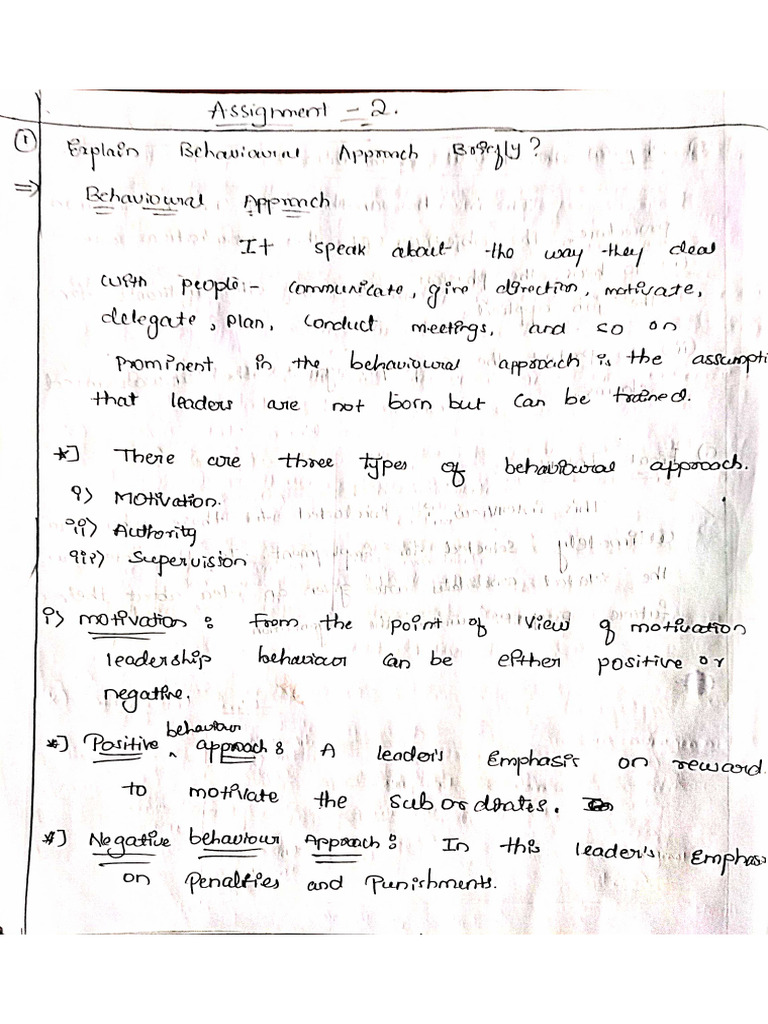 Assignment - 2.
① Explain Behavioural Approach Briefly?
⇒ Behavioural Approach
It speak about the way they deal
with people:- communicate, give direction, motivate,
delegate, plan, conduct meetings, and so on
prominent in the behavioural approach is the assumpti
that leaders are not born but can be trained.
*] There are three types of behavioural approach.
i) Motivation.
ii) Authority
iii) Supervision
i) Motivation: From the point of view of motivation
leadership behaviour can be either positive or
negative.
*] Positive behaviour approach: A leader's Emphasis on reward
to motivate the subordinates.
*] Negative behaviour Approach: In this leader's Emphas
on Penalties and Punishments.